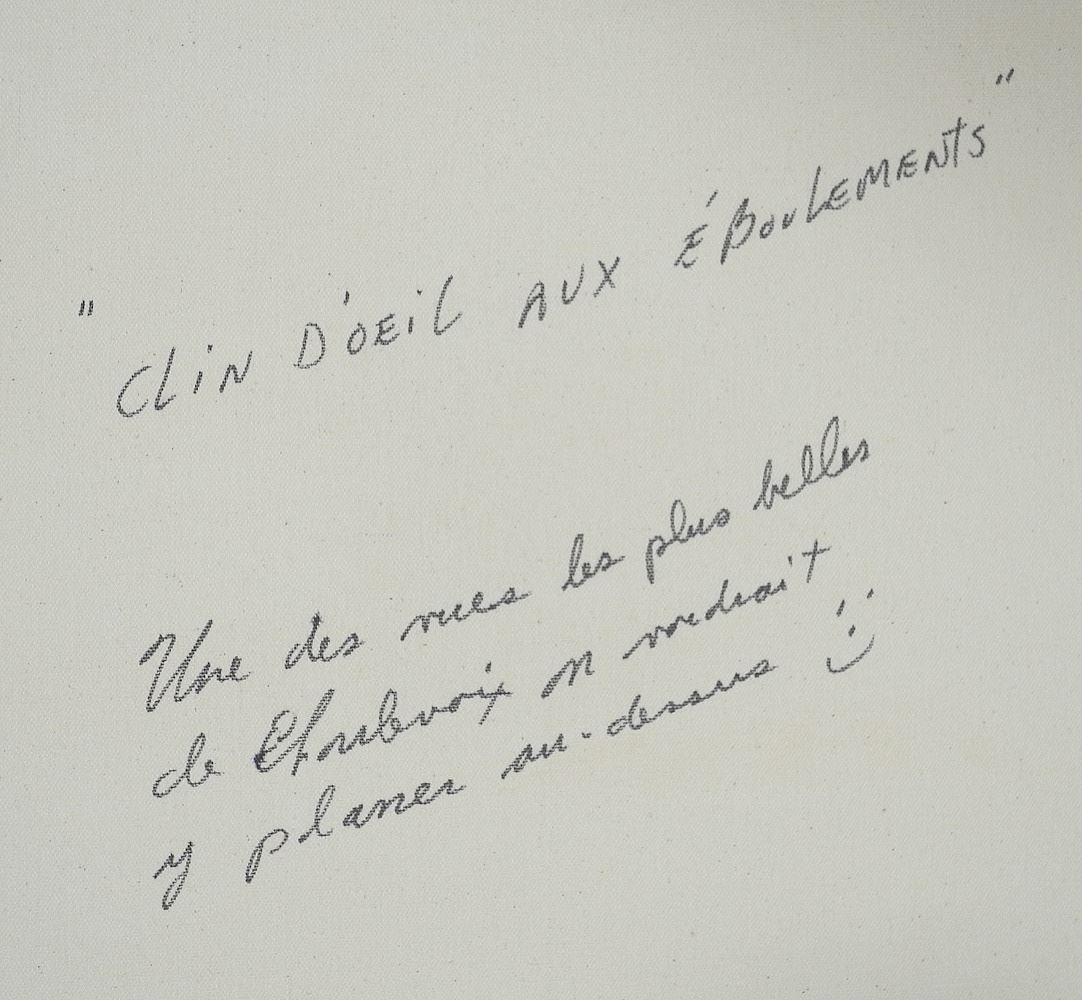 " CLIN D'OEIL AUX ÉBOULEMENTS "
Une des vues les plus belles
de Charlevoix on voudrait
y planer au-dessus :)